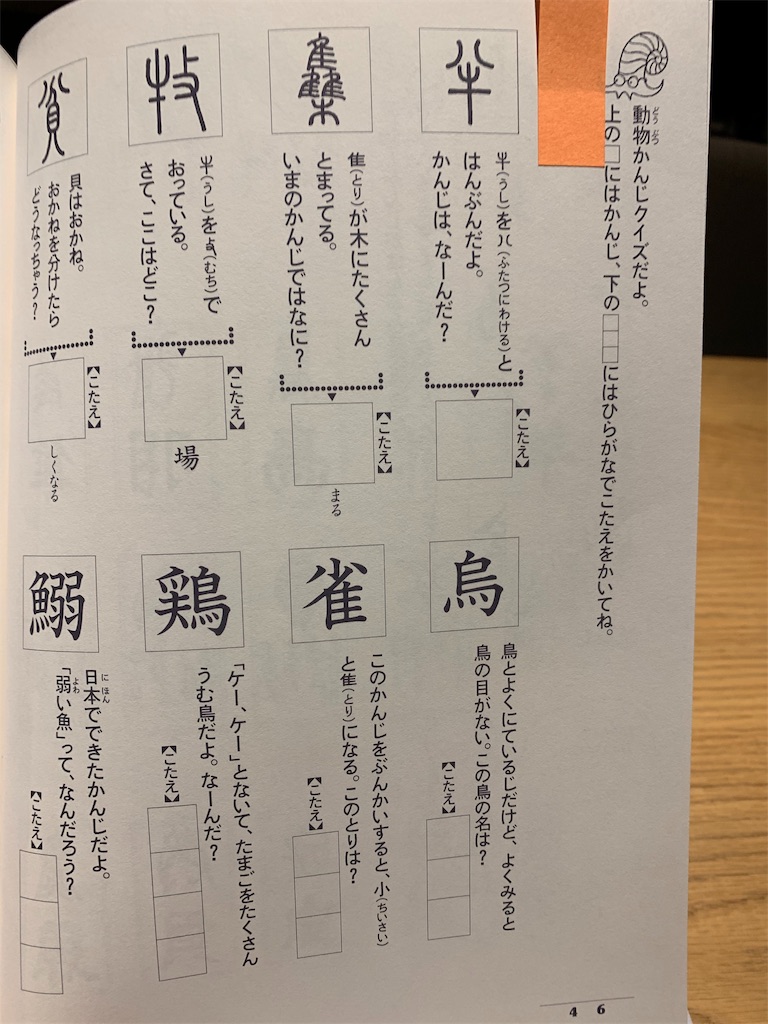 動物かんじクイズだよ。
どうぶつ
上の□にはかんじ、下の□□□にはひらがなでこたえをかいてね。
半
牛(うし)を八(ふたつにわける)と
はんぶんだよ。
かんじは、なーんだ？
【こたえ】
隹(とり)が木にたくさん
とまってる。
いまのかんじではなに？
【こたえ】
まる
牧
牛(うし)を攴(むち)で
おっている。
さて、ここはどこ？
【こたえ】
場
貧
貝はおかね。
おかねを分けたら
どうなっちゃう？
【こたえ】
しくなる
烏
鳥とよくにているじだけど、よくみると
鳥の目がない。この鳥の名は？
【こたえ】
雀
このかんじをぶんかいすると、小(ちいさい)
と隹(とり)になる。このとりは？
【こたえ】
鶏
「ケー、ケー」とないて、たまごをたくさん
うむ鳥だよ。なーんだ？
【こたえ】
鰯
日本でできたかんじだよ。
にほん
「弱い魚」って、なんだろう？
よわ
【こたえ】
46